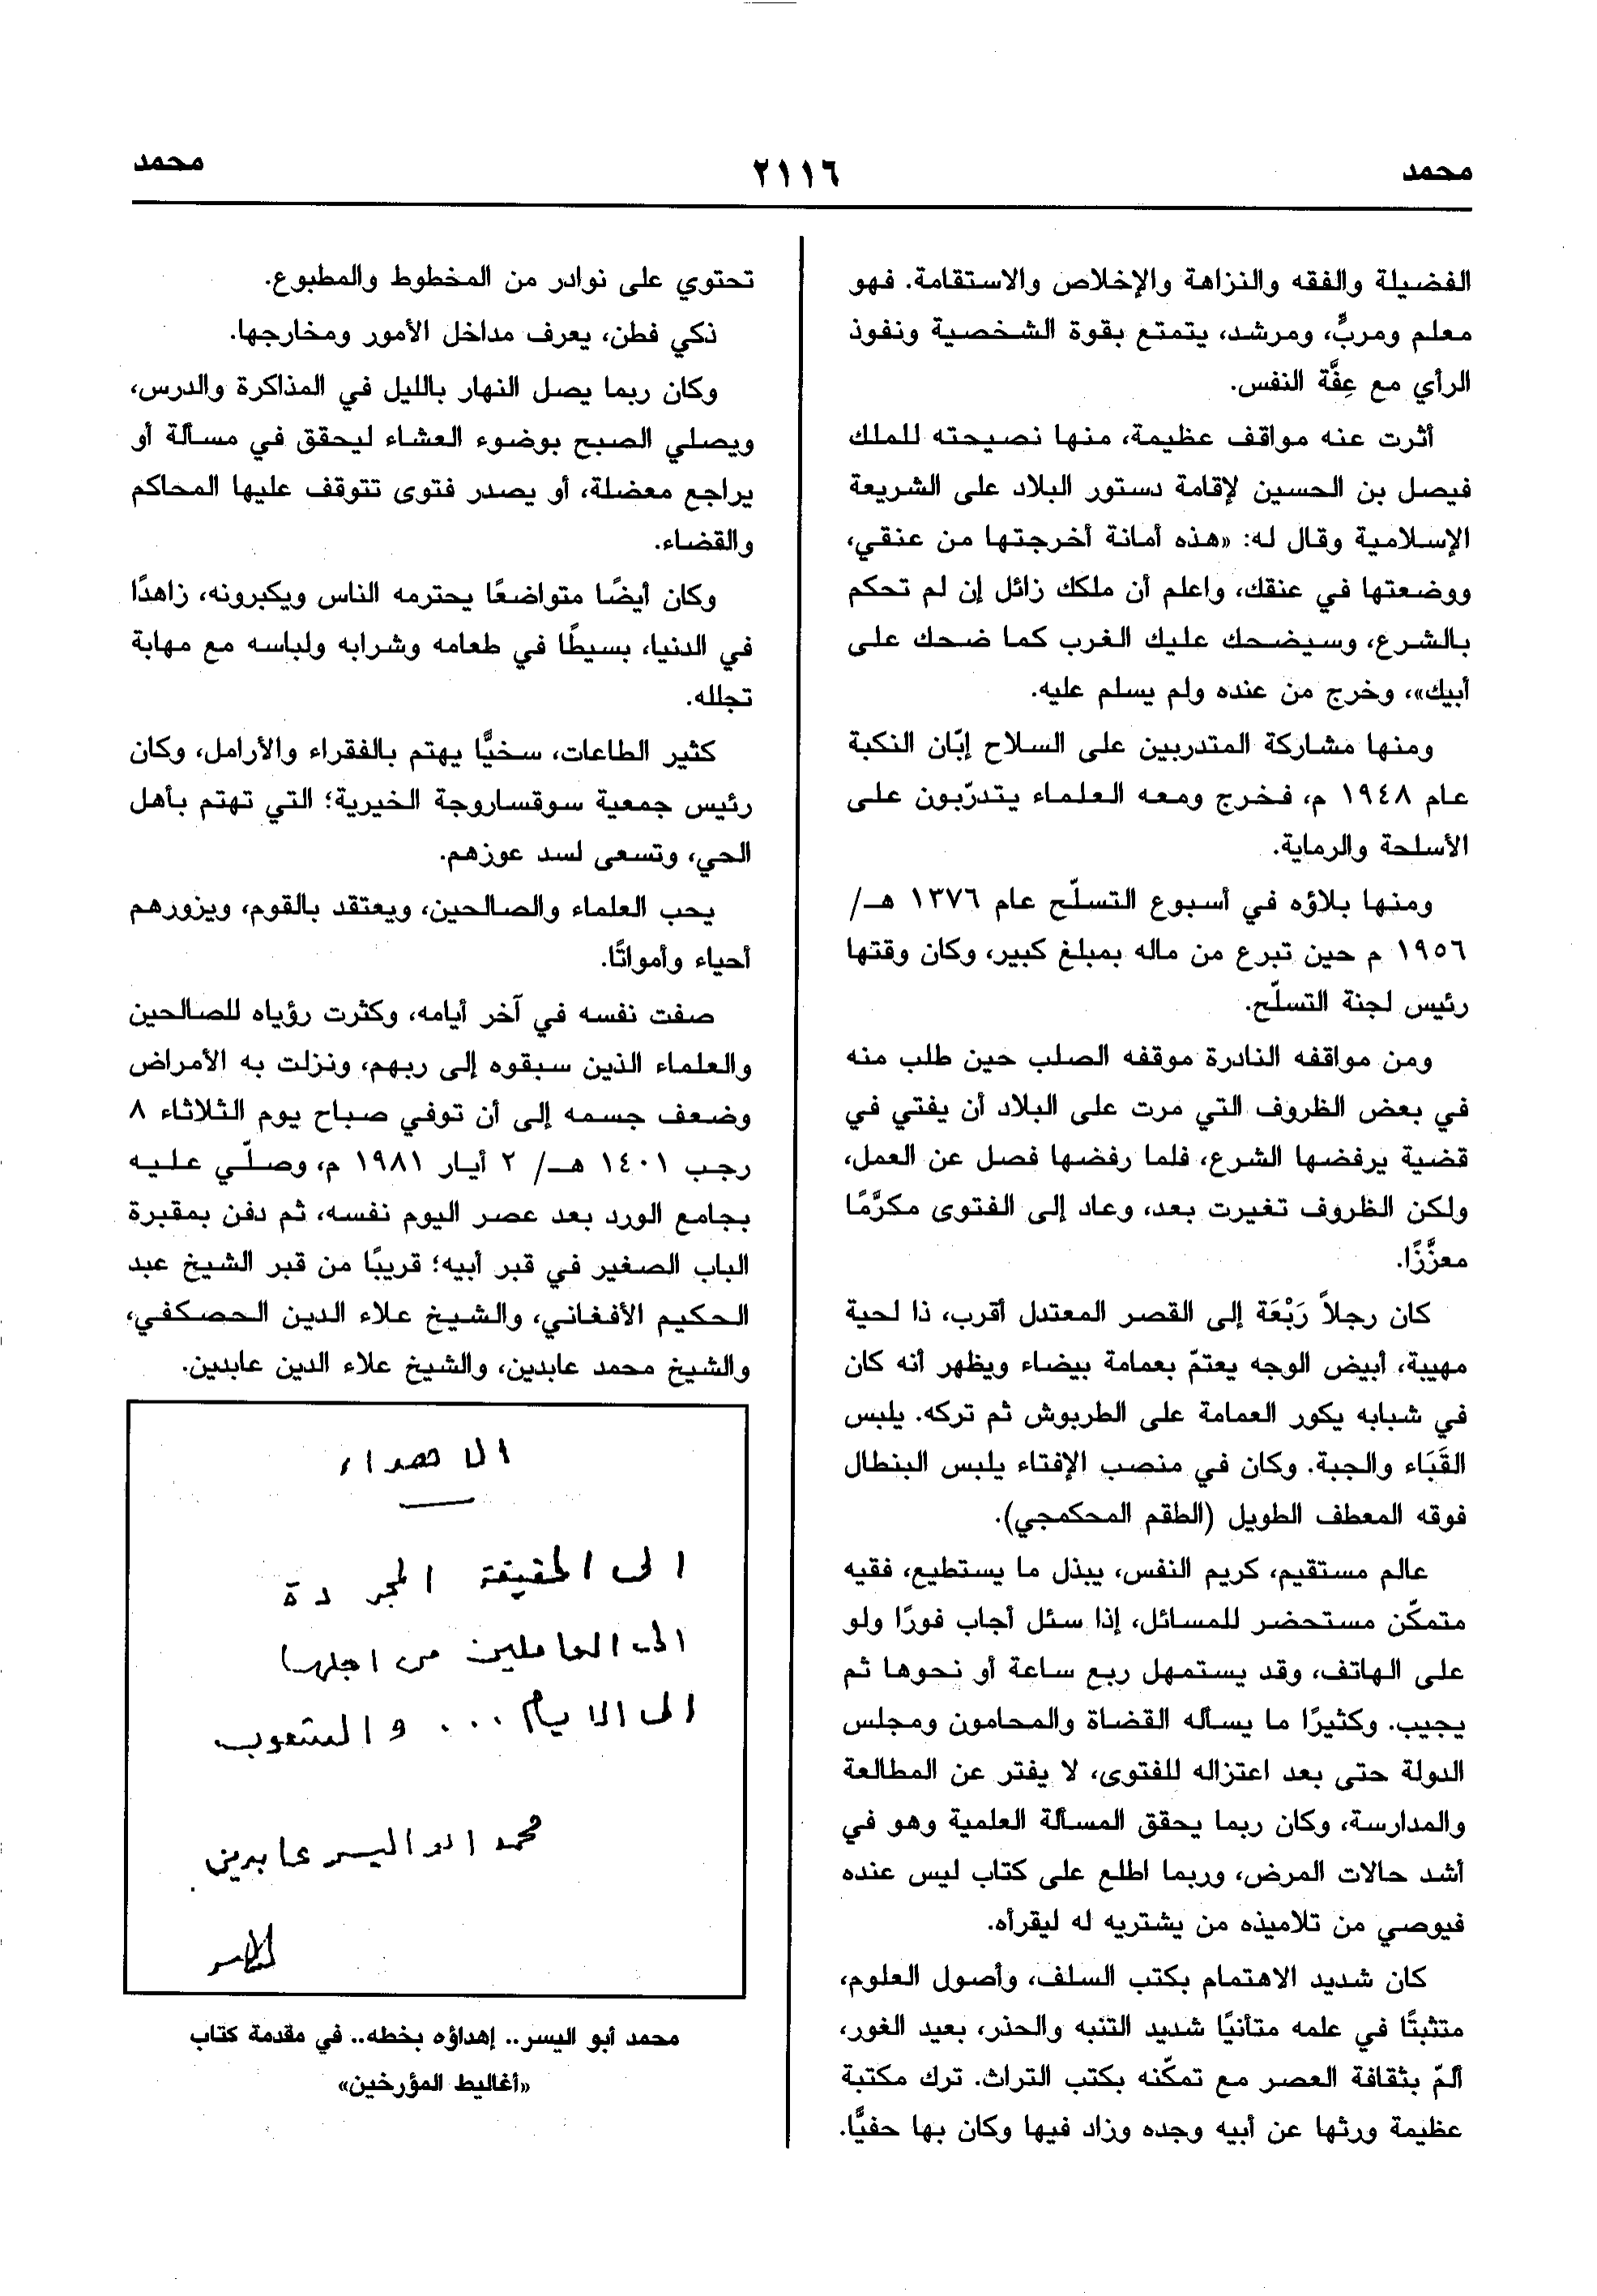 محمد
٢١١٦
محمد
الفضيلة والفقه والنزاهة والإخلاص والاستقامة. فهو
معلم ومربٍّ، ومرشد، يتمتع بقوة الشخصية ونفوذ
الرأي مع عِفَّة النفس.
أثرت عنه مواقف عظيمة، منها نصيحته للملك
فيصل بن الحسين لإقامة دستور البلاد على الشريعة
الإسلامية وقال له: «هذه أمانة أخرجتها من عنقي،
ووضعتها في عنقك، واعلم أن ملكك زائل إن لم تحكم
بالشرع، وسيضحك عليك الغرب كما ضحك على
أبيك»، وخرج من عنده ولم يسلم عليه.
ومنها مشاركة المتدربين على السلاح إبّان النكبة
عام ١٩٤٨ م، فخرج ومعه العلماء يتدرّبون على
الأسلحة والرماية.
ومنها بلاؤه في أسبوع التسلّح عام ١٣٧٦ هـ/
١٩٥٦ م حين تبرع من ماله بمبلغ كبير، وكان وقتها
رئيس لجنة التسلّح.
ومن مواقفه النادرة موقفه الصلب حين طلب منه
في بعض الظروف التي مرت على البلاد أن يفتي في
قضية يرفضها الشرع، فلما رفضها فصل عن العمل،
ولكن الظروف تغيرت بعد، وعاد إلى الفتوى مكرَّمًا
معزَّزًا.
كان رجلاً رَبْعَة إلى القصر المعتدل أقرب، ذا لحية
مهيبة، أبيض الوجه يعتمّ بعمامة بيضاء ويظهر أنه كان
في شبابه يكور العمامة على الطربوش ثم تركه. يلبس
القَبَاء والجبة. وكان في منصب الإفتاء يلبس البنطال
فوقه المعطف الطويل (الطقم المحكمجي).
عالم مستقيم، كريم النفس، يبذل ما يستطيع، فقيه
متمكّن مستحضر للمسائل، إذا سئل أجاب فورًا ولو
على الهاتف، وقد يستمهل ربع ساعة أو نحوها ثم
يجيب. وكثيرًا ما يسأله القضاة والمحامون ومجلس
الدولة حتى بعد اعتزاله للفتوى، لا يفتر عن المطالعة
والمدارسة، وكان ربما يحقق المسألة العلمية وهو في
أشد حالات المرض، وربما اطلع على كتاب ليس عنده
فيوصي من تلاميذه من يشتريه له ليقرأه.
كان شديد الاهتمام بكتب السلف، وأصول العلوم،
متثبتًا في علمه متأنيًا شديد التنبه والحذر، بعيد الغور،
ألمّ بثقافة العصر مع تمكّنه بكتب التراث. ترك مكتبة
عظيمة ورثها عن أبيه وجده وزاد فيها وكان بها حفيًّا.
تحتوي على نوادر من المخطوط والمطبوع.
ذكي فطن، يعرف مداخل الأمور ومخارجها.
وكان ربما يصل النهار بالليل في المذاكرة والدرس،
ويصلي الصبح بوضوء العشاء ليحقق في مسألة أو
يراجع معضلة، أو يصدر فتوى تتوقف عليها المحاكم
والقضاء.
وكان أيضًا متواضعًا يحترمه الناس ويكبرونه، زاهدًا
في الدنيا، بسيطًا في طعامه وشرابه ولباسه مع مهابة
تجلله.
كثير الطاعات، سخيًّا يهتم بالفقراء والأرامل، وكان
رئيس جمعية سوقساروجة الخيرية؛ التي تهتم بأهل
الحي، وتسعى لسد عوزهم.
يحب العلماء والصالحين، ويعتقد بالقوم، ويزورهم
أحياء وأمواتًا.
صفت نفسه في آخر أيامه، وكثرت رؤياه للصالحين
والعلماء الذين سبقوه إلى ربهم، ونزلت به الأمراض
وضعف جسمه إلى أن توفي صباح يوم الثلاثاء ٨
رجب ١٤٠١ هـ/ ٢ أيار ١٩٨١ م، وصلّي عليه
بجامع الورد بعد عصر اليوم نفسه، ثم دفن بمقبرة
الباب الصغير في قبر أبيه؛ قريبًا من قبر الشيخ عبد
الحكيم الأفغاني، والشيخ علاء الدين الحصكفي،
والشيخ محمد عابدين، والشيخ علاء الدين عابدين.
الاهداء
الى الحقيقة المجردة
الى العاملين من اجلها
الى الايام ... والشعوب
محمد ابو اليسر عابدين
محمد أبو اليسر.. إهداؤه بخطه.. في مقدمة كتاب
«أغاليط المؤرخين»